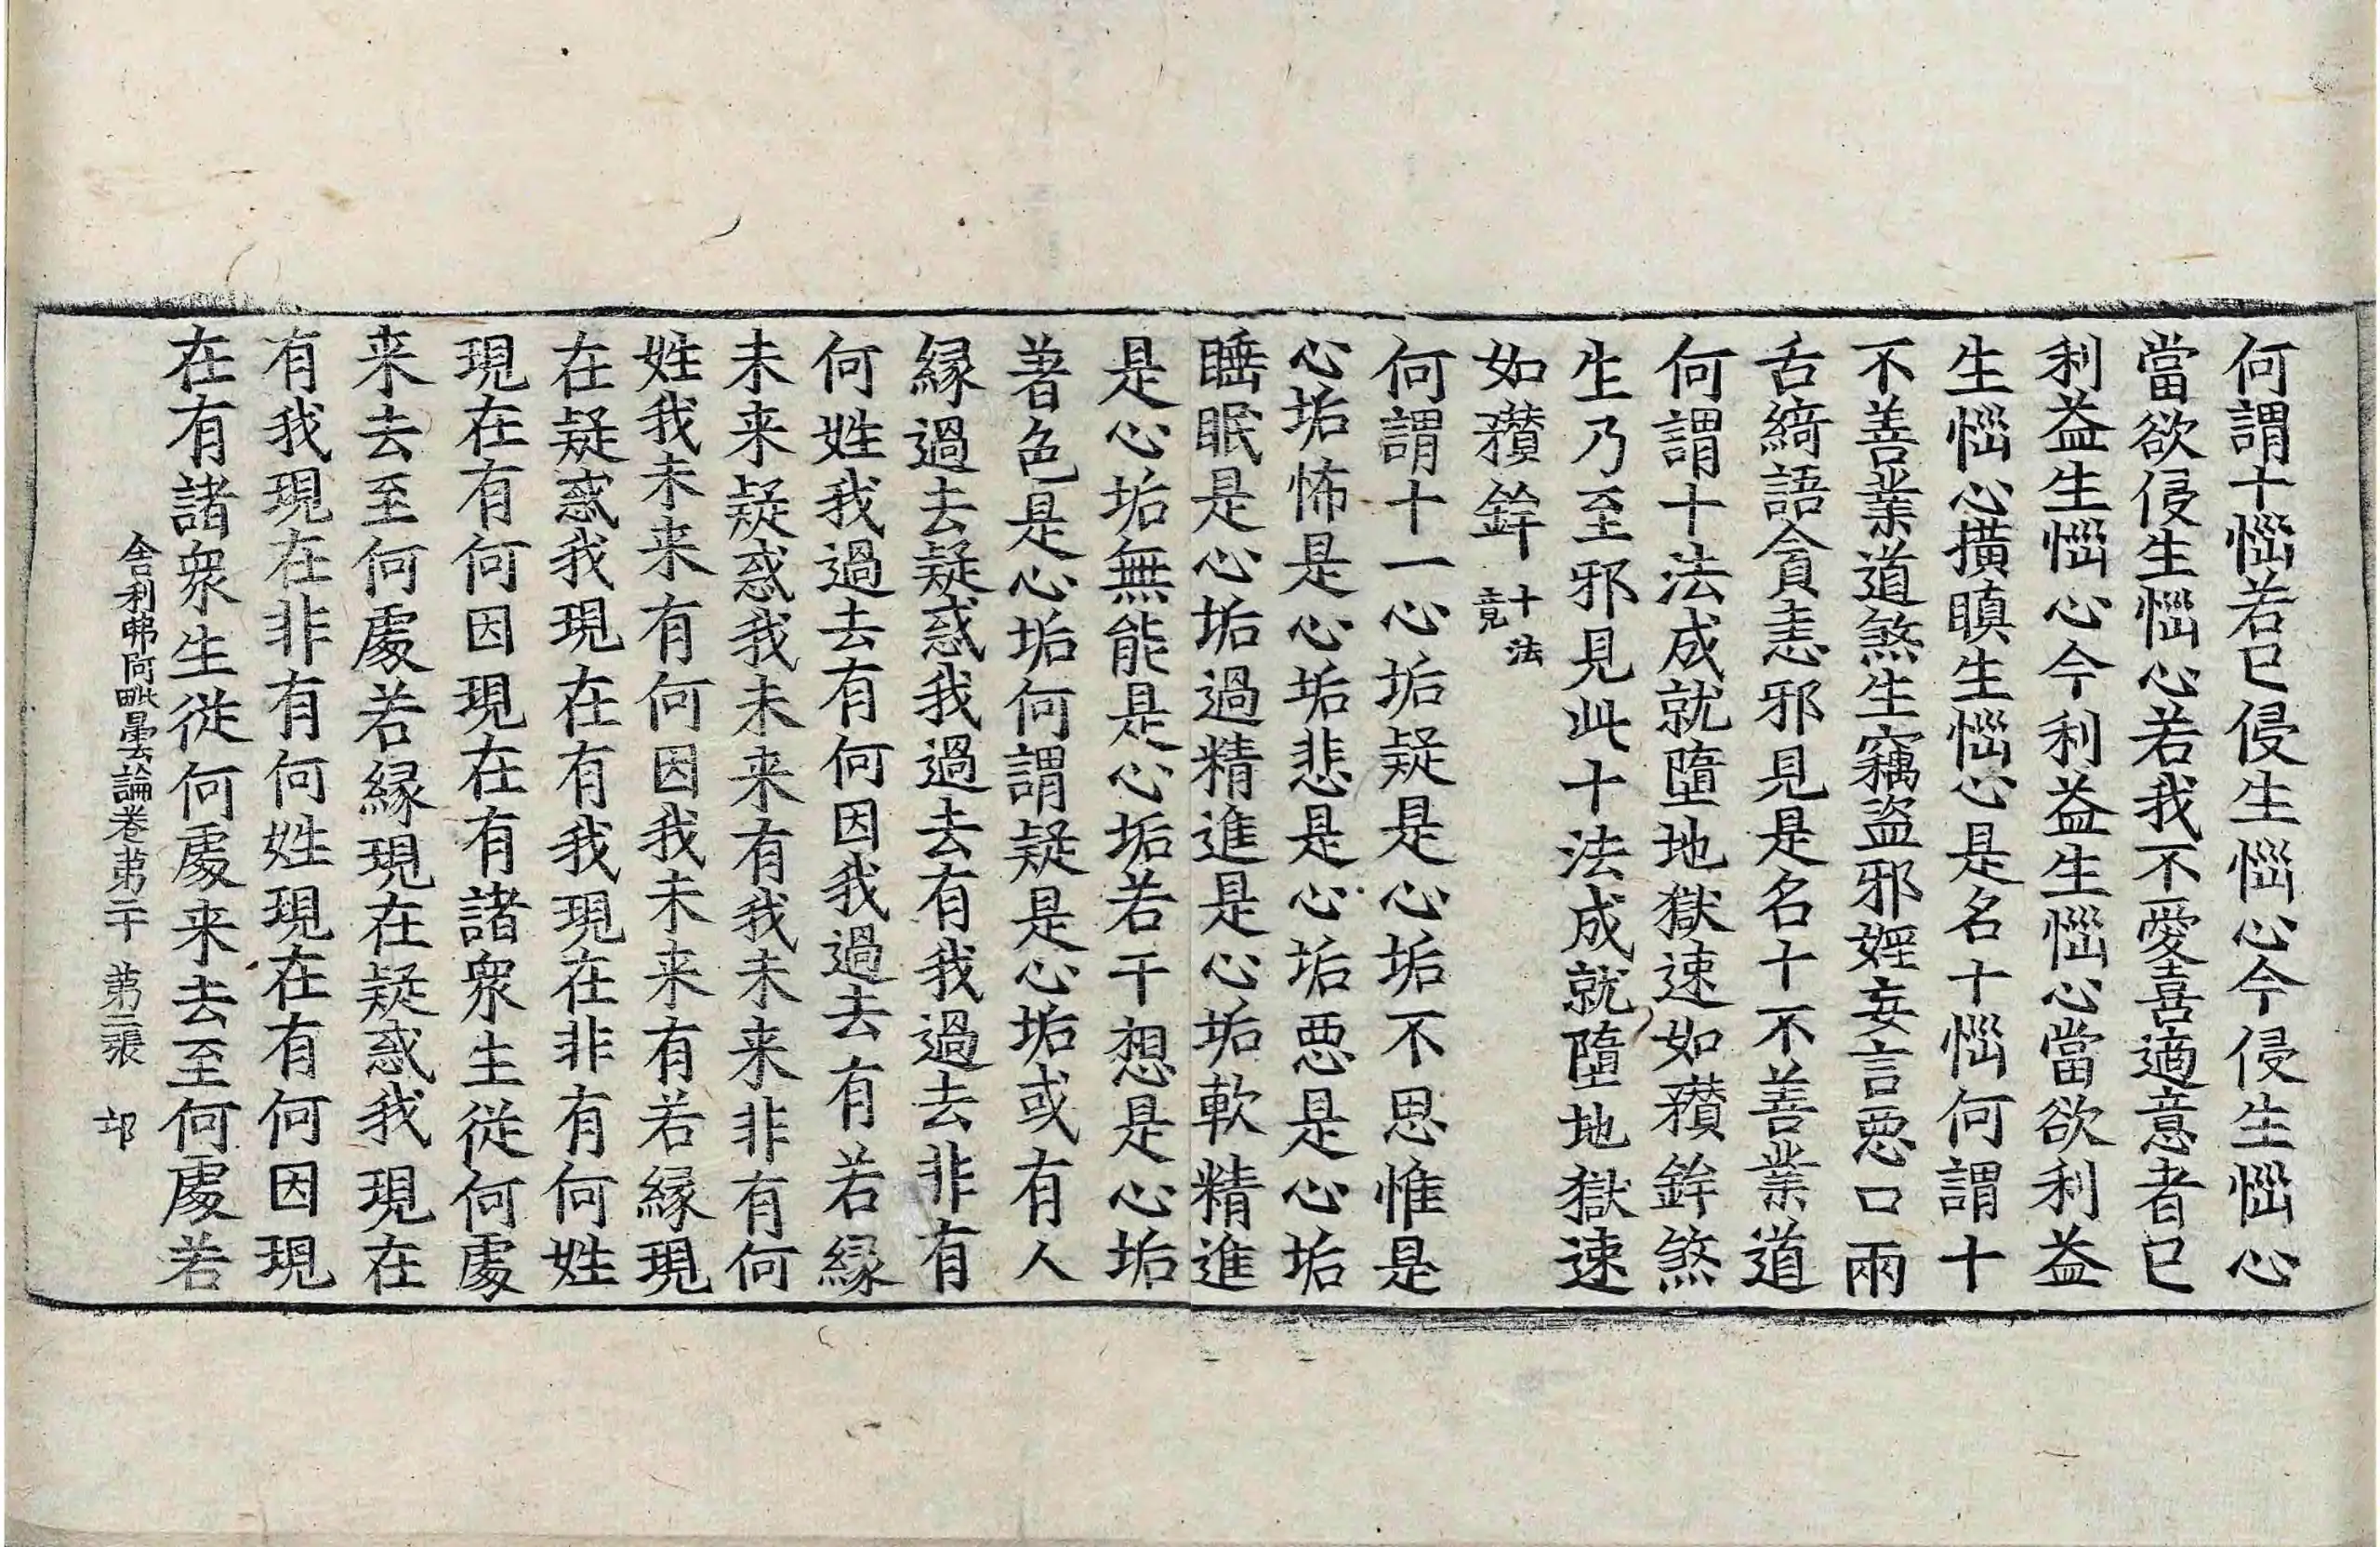 何謂十惱若已侵生惱心今侵生惱心
當欲侵生惱心若我不愛喜適意者已
利益生惱心今利益生惱心當欲利益
生惱心撗瞋生惱心是名十惱何謂十
不善業道煞生竊盜邪婬妄言惡口兩
舌綺語貪恚邪見是名十不善業道
何謂十法成就墮地獄速如䂎鉾煞
生乃至邪見此十法成就墮地獄速
如䂎鉾十法竟
何謂十一心垢疑是心垢不思惟是
心垢怖是心垢悲是心垢惡是心垢
睡眠是心垢過精進是心垢軟精進
是心垢無能是心垢若干想是心垢
著色是心垢何謂疑是心垢或有人
緣過去疑惑我過去有我過去非有
何姓我過去有何因我過去有若緣
未来疑惑我未来有我未来非有何
姓我未来有何因我未来有若緣現
在疑惑我現在有我現在非有何姓
現在有何因現在有諸衆生從何處
来去至何處若緣現在疑惑我現在
有我現在非有何姓現在有何因現
在有諸衆生從何處来去至何處若
舍利弗阿毗曇論卷第二十 第三張